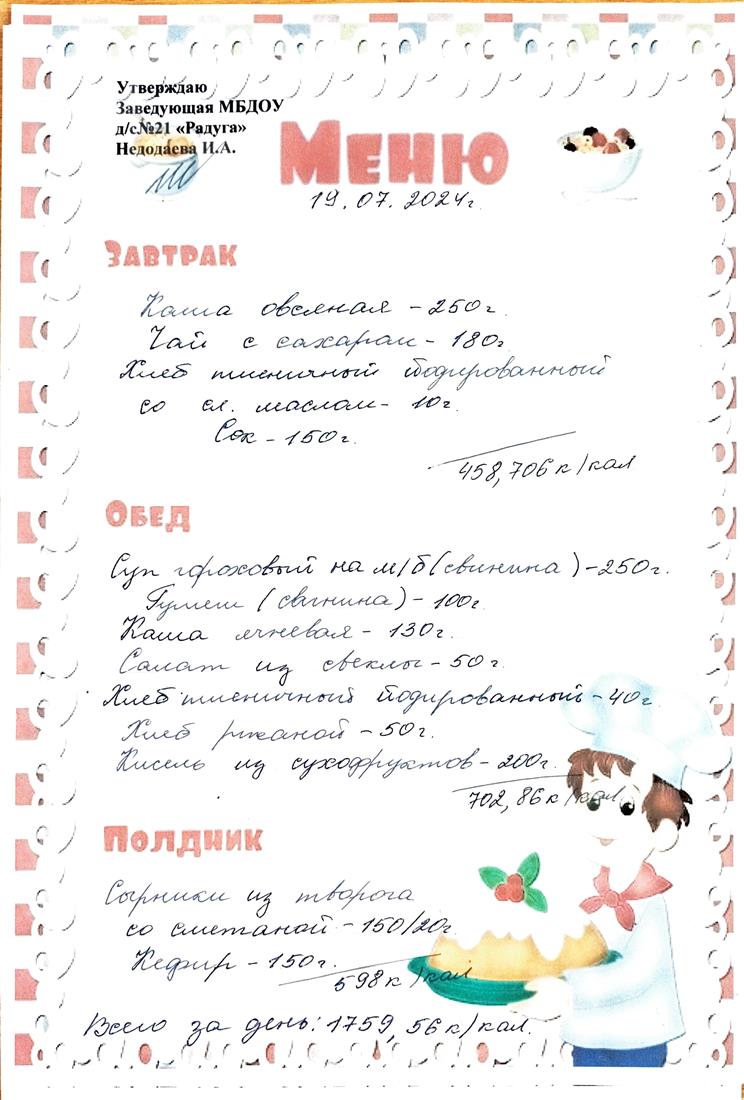 Утверждаю
Заведующая МБДОУ
д/с№21 «Радуга»
Недодаева И.А.
Меню
19.07.2024г.
Завтрак
Каша овсяная - 250г.
Чай с сахаром - 180г.
Хлеб пшеничный йодированный
со сл. маслом - 10г.
Сок - 150г.
458,706 к/кал
Обед
Суп гороховый на м/б (свинина) - 250г.
Гуляш (свинина) - 100г.
Каша ячневая - 130г.
Салат из свеклы - 50г.
Хлеб пшеничный йодированный - 40г.
Хлеб ржаной - 50г.
Кисель из сухофруктов - 200г.
702,86 к/кал
Полдник
Сырники из творога
со сметаной - 150/20г.
Кефир - 150г.
598 к/кал
Всего за день: 1759,56 к/кал.